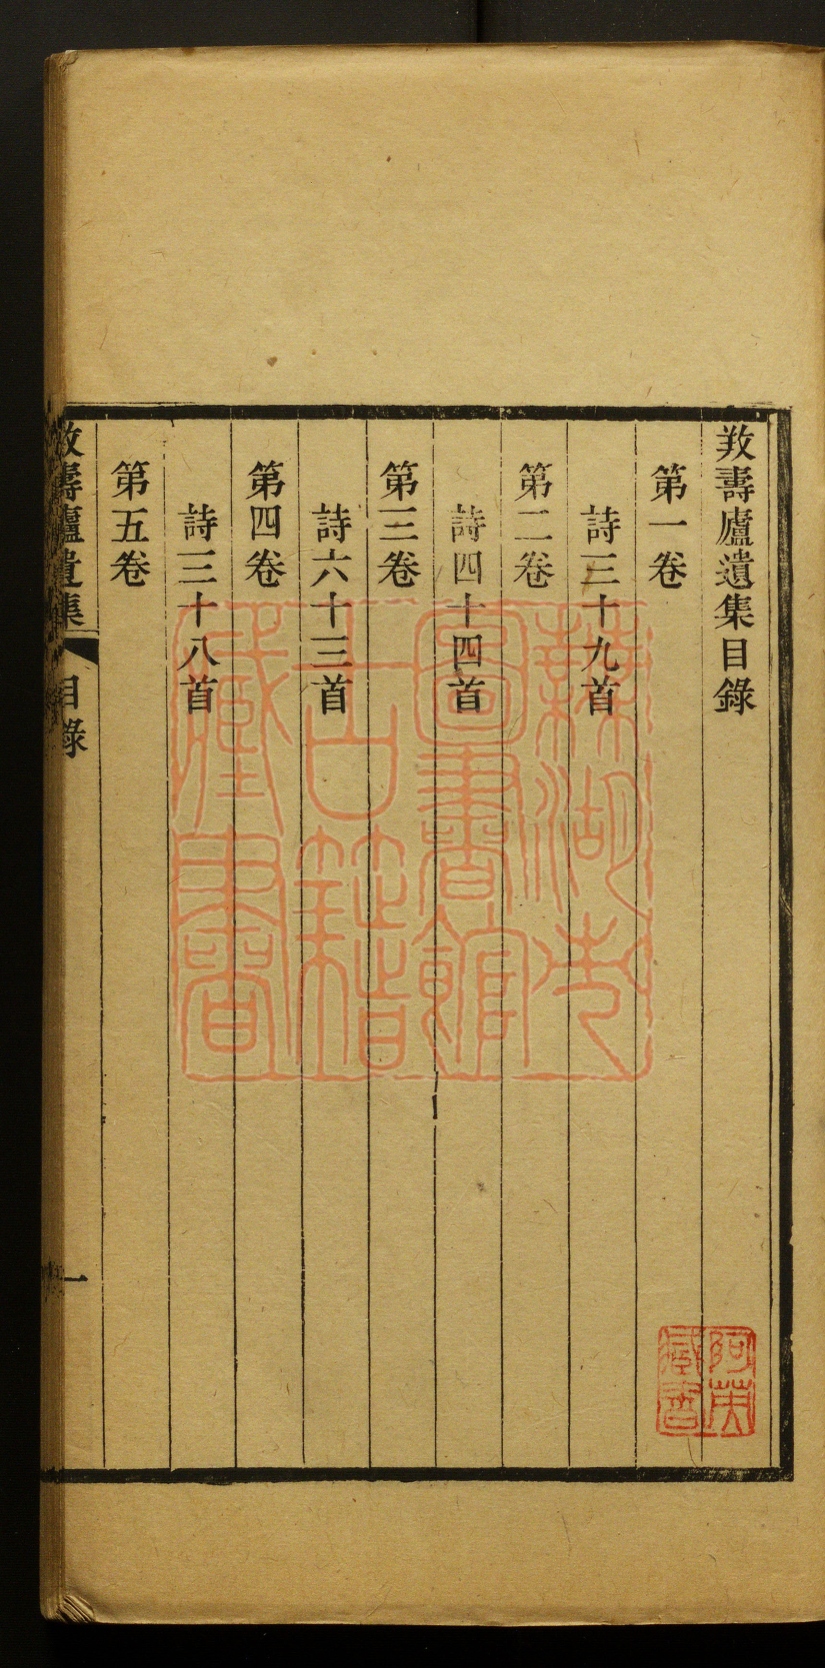 𢼝壽廬遺集目錄
第一卷
詩三十九首
第二卷
詩四十四首
第三卷
詩六十三首
第四卷
詩三十八首
第五卷
𢼝壽廬遺集 目錄 一
蕪湖市
圖書館
古籍
藏書
阿英
藏書